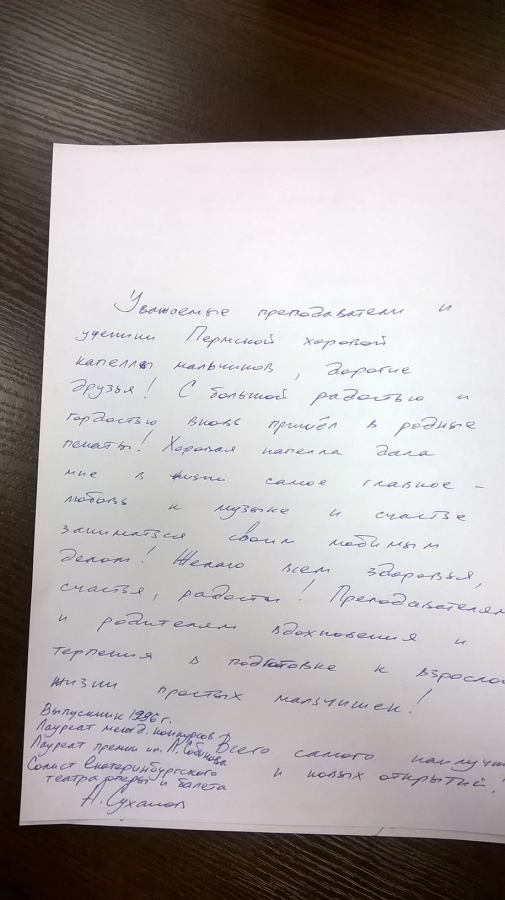 Уважаемые преподаватели и
ученики Пермской хоровой
капеллы мальчиков, дорогие
друзья! С большой радостью и
гордостью вновь пришёл в родные
пенаты! Хоровая капелла дала
мне в жизни самое главное -
любовь к музыке и счастье
заниматься своим любимым
делом! Желаю всем здоровья,
счастья, радости! Преподавателям
и родителям вдохновения и
терпения в подготовке к взрослой
жизни простых мальчишек!
Всего самого наилучш
и новых открытий!
Выпускник 1996 г.
Лауреат межд. конкурсов
Лауреат премии им. Л. Собинова
Солист Екатеринбургского
театра оперы и балета
А. Суханов